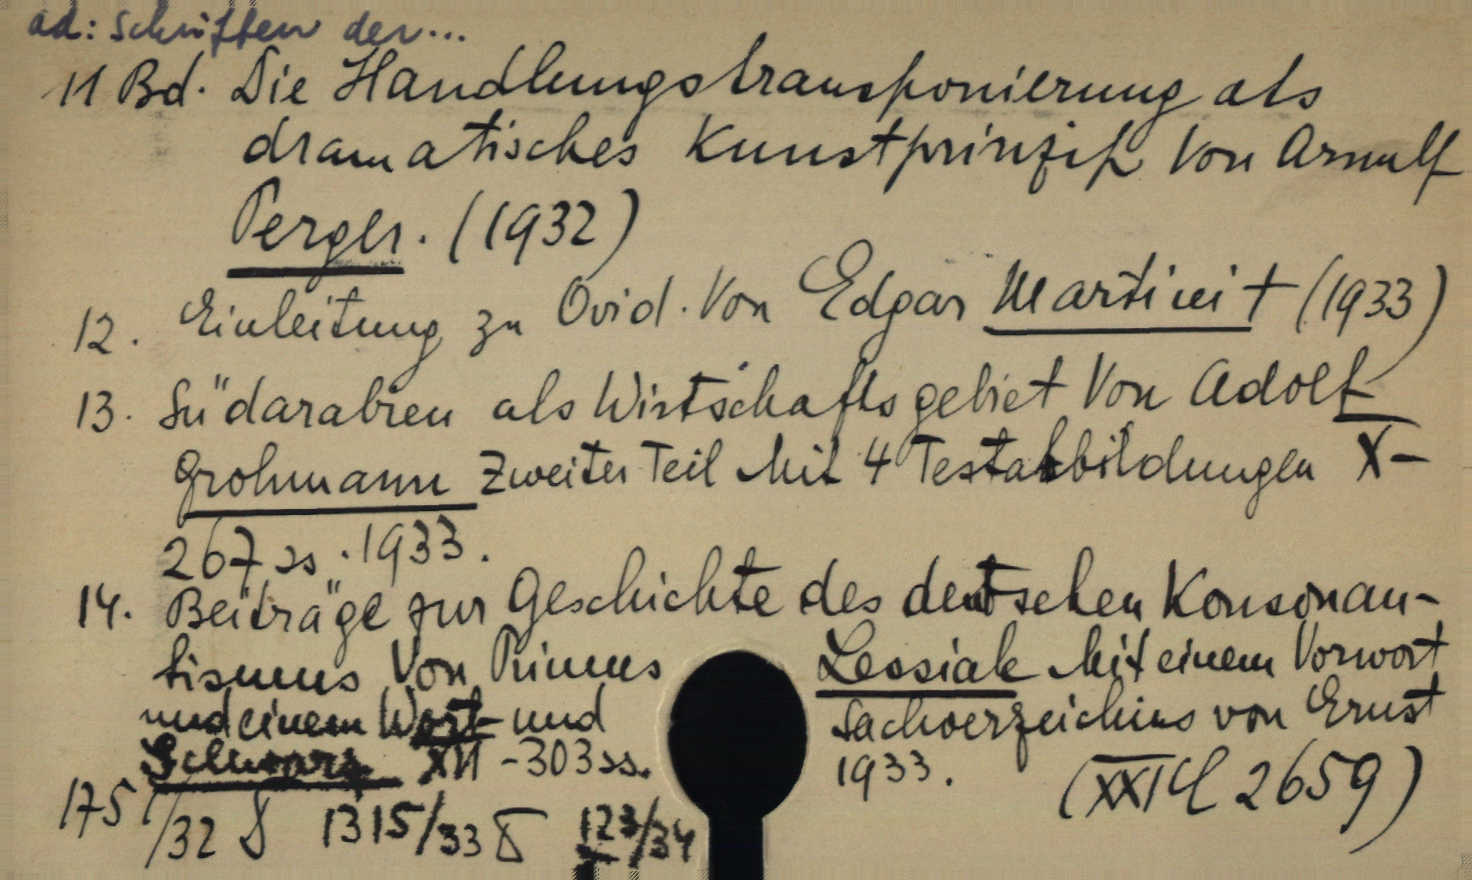 ad: Schriften der...
11 Bd. Die Handlungstransponierung als
dramatisches Kunstprinzip Von Arnulf
Perger. (1932)
12. Einleitung zu Ovid. Von Edgar Martini † (1933)
13. Südarabien als Wirtschaftsgebiet Von Adolf
Grohmann Zweiter Teil Mit 4 Testabbildungen X-
267 ss. 1933.
14. Beiträge zur Geschichte des deutschen Konsonan-
tismus Von Primus Lessiak Mit einem Vorwort
und einem Wort- und Sachverzeichins von Ernst
Schwarz XII - 303 ss. 1933.
(XXI 2659)
175 /32 1315/33 123/34